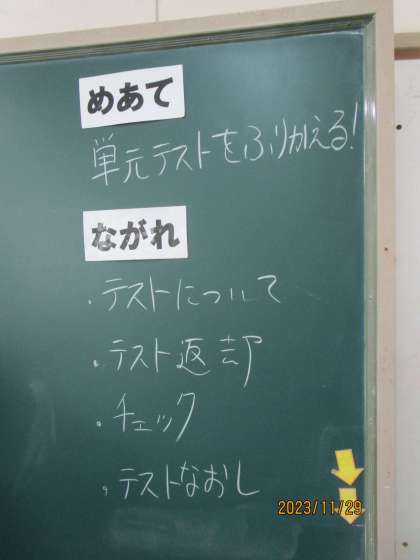 めあて
単元テストをふりかえる!
ながれ
・テストについて
・テスト返却
・チェック
・テストなおし
2023/11/29